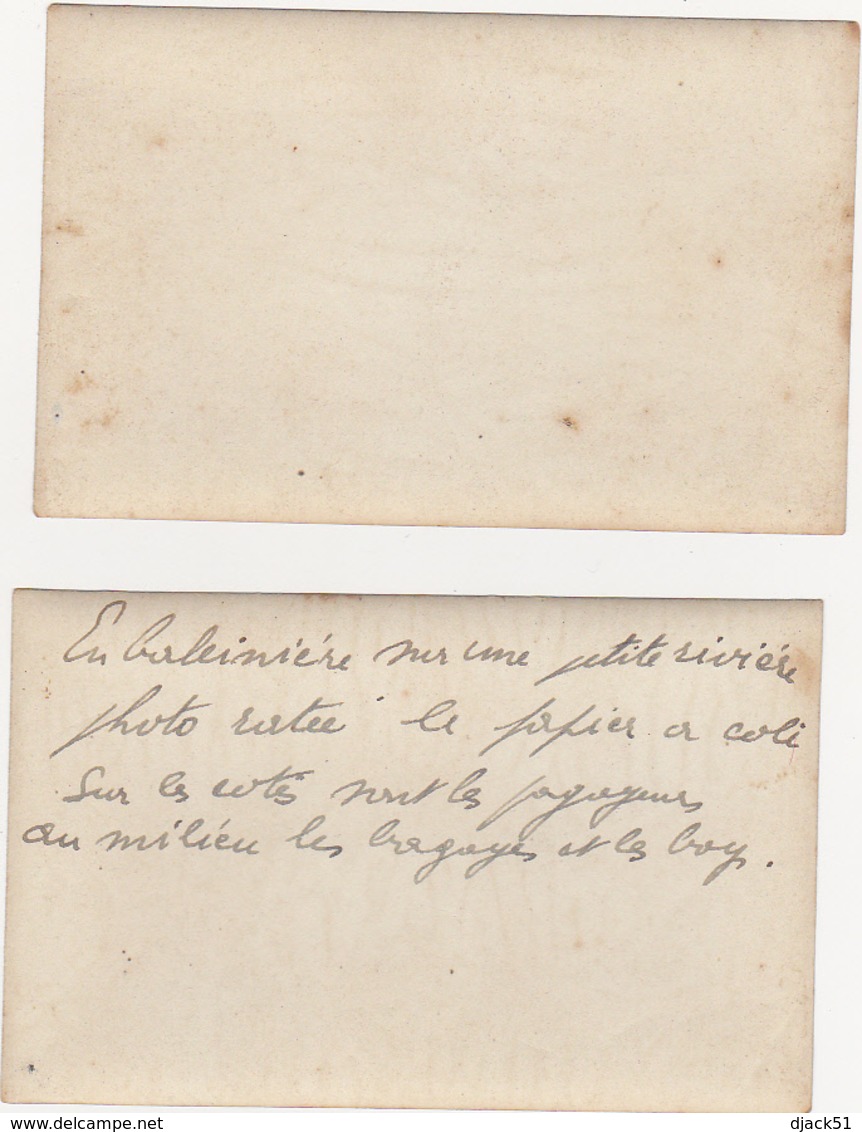 En baleinière sur une petite rivière
photo ratée le papier a coli
Sur les cotés sont les pagayeurs
au milieu les bagages et les boys.
delcampe.net
djack51